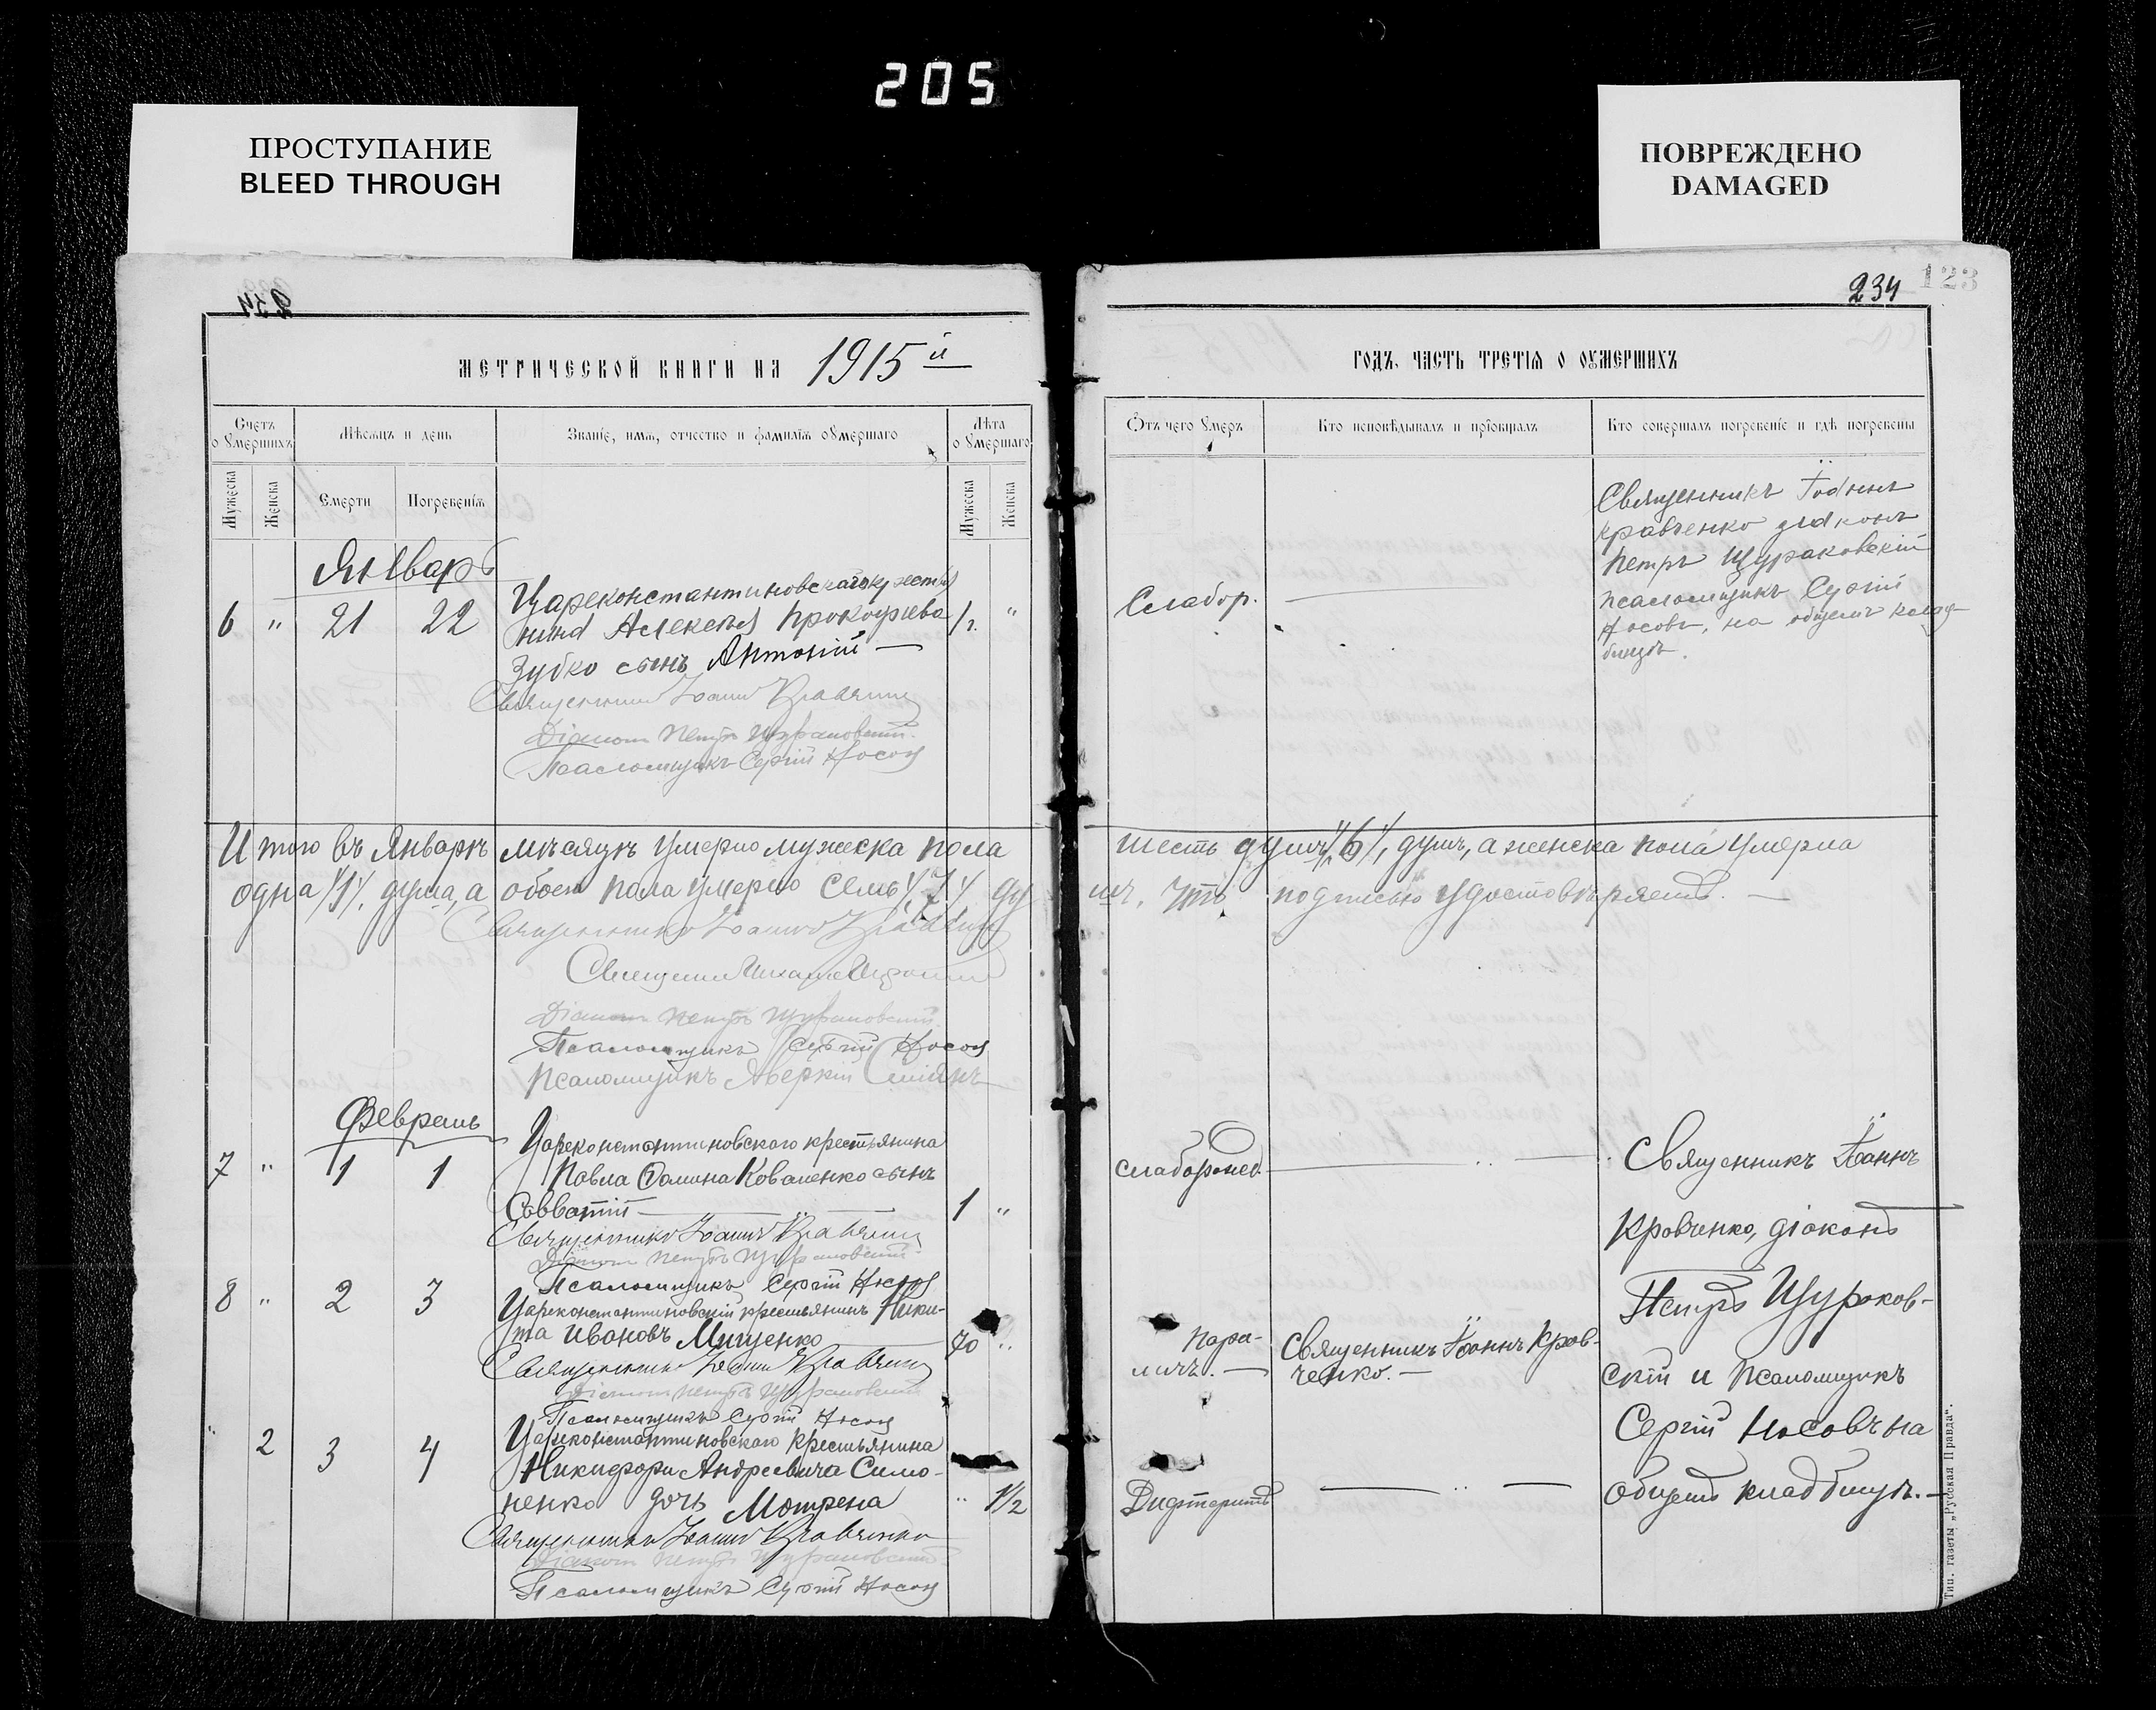 205
ПРОСТУПАНИЕ
BLEED THROUGH
ПОВРЕЖДЕНО
DAMAGED
234
123
МЕТРИЧЕСКОЙ КНИГИ НА 1915й
Счетъ о умершихъ
Мѣсяцъ и день
Званіе, имя, отчество и фамилія умершаго
Лѣта о умершаго
Мужеска
Женска
Смерти
Погребенія
Мужеска
Женска
Январь
6 " 21 22
Цареконстантиновскаго крестья
нина Алексѣя Прокофіева
Зубко сынъ Антоній —
Священникъ Іоаннъ Кравченко
Діаконъ Петръ Щураковскій
Псаломщикъ Сергій Носов
Итого въ Январѣ мѣсяцѣ умерло мужеска пола
одна /1/, душа, а обоего пола умерло семь /7/ ду
Священникъ Іоаннъ Кравченко
Священникъ
Діаконъ Петръ Щураковскій
Псаломщикъ Сергій Носов
Псаломщикъ Аверкій
Февраль
7 " 1 1
Цареконстантиновскаго крестьянина
Павла Фомина Коваленко сынъ
Савватій — 1 "
Священникъ Іоаннъ Кравченко
Діаконъ Петръ Щураковскій
Псаломщикъ Сергій Носов
8 " 2 3
Цареконстантиновскій крестьянинъ Ники-
та Ивановъ Мищенко 70 "
Священникъ Іоаннъ Кравченко
Діаконъ Петръ Щураковскій
Псаломщикъ Сергій Носов
" 2 3 4
Цареконстантиновскаго крестьянина
Никифора Андреевича Симо-
ненко дочь Мотрена " 1/2
Священникъ Іоаннъ Кравченко
Діаконъ Петръ Щураковскій
Псаломщикъ Сергій Носов
ГОДЪ, ЧАСТЬ ТРЕТІЯ О УМЕРШИХЪ
Отъ чего умеръ
Кто исповѣдывалъ и пріобщалъ
Кто совершалъ погребеніе и гдѣ погребены
Слабор. —
Священникъ Іоаннъ
Кравченко діаконъ
Петръ Щураковскій
псаломщикъ Сергій
Носовъ, на общемъ клад-
бищѣ.
шесть душъ /6/, душъ, а женска пола умерла
шъ, что подписью удостовѣряемъ. —
слаборожд. —
Священникъ Іоаннъ
Кравченко, діаконъ
Петръ Щураков-
скій и псаломщикъ
Сергій Носовъ на
общемъ кладбищѣ. —
пара-
личъ. —
Священникъ Іоаннъ Крав-
ченко. —
Дифтеритъ —
Тип. газеты „Русская Правда".